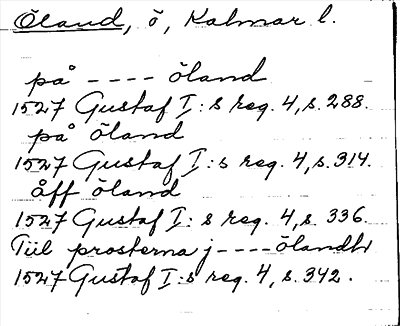 Öland, ö, Kalmar l.
på ---- öland
1527 Gustaf I:s reg. 4, s. 288.
på öland
1527 Gustaf I:s reg. 4, s. 314.
åff öland
1527 Gustaf I:s reg. 4, s. 336.
Tiil prosterna j ---- ölandh
1527 Gustaf I:s reg. 4, s. 342.